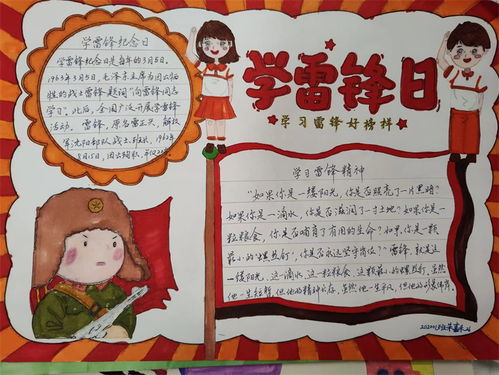 学雷锋纪念日
学雷锋纪念日是每年的3月5日。
1963年3月5日,毛泽东主席为因公牺
牲的战士雷锋题词“向雷锋同志
学习”。此后,全国广泛开展学雷锋
活动。雷锋,原名雷正兴,解放
军沈阳部队战士,班长,1962年
8月15日,因公殉职,年仅22岁
学雷锋日
学习雷锋好榜样
学习雷锋精神
“如果你是一缕阳光,你是否照亮了一片黑暗?
如果你是一滴水,你是否滋润了一寸土地?如果你是一
粒粮食,你是否哺育了有用的生命?如果,你是一颗
最小的螺丝钉,你是否永远坚守岗位?”雷锋,就是这
一缕阳光,这一滴水,这一粒粮食,这颗最小的螺丝钉,虽然
他一生短暂,但他的精神永存,虽然他一生平凡,但他的形象伟岸。